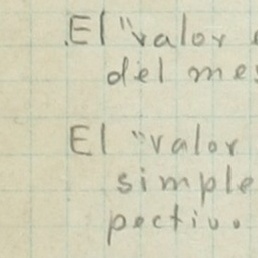 El "valor
del mes
El "valor
simple
pectivo.